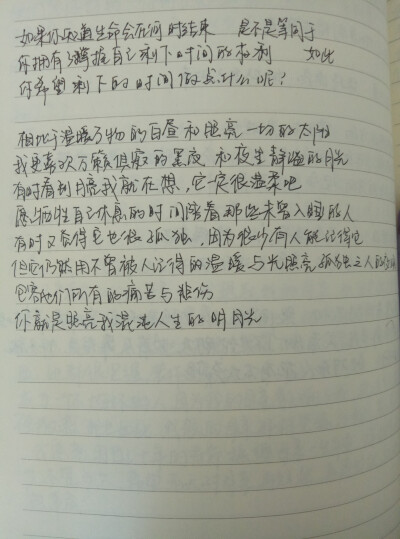 如果你知道生命会在何时结束 是不是等同于
你拥有了掌握自己剩下时间的权利 如此
你希望剩下的时间做点什么呢?
相比于温暖万物的白昼和照亮一切的太阳
我更喜欢万籁俱寂的黑夜 和夜里静谧的月光
有时看到月亮我就在想,它一定很温柔吧
愿牺牲自己休息的时间陪着那些未曾入睡的人
有时又觉得它也很孤独,因为很少有人能记得它
但它仍然用不曾被人记得的温暖与光照亮孤独之人的
包容他们所有的痛苦与悲伤
你就是照亮我混沌人生的明月光